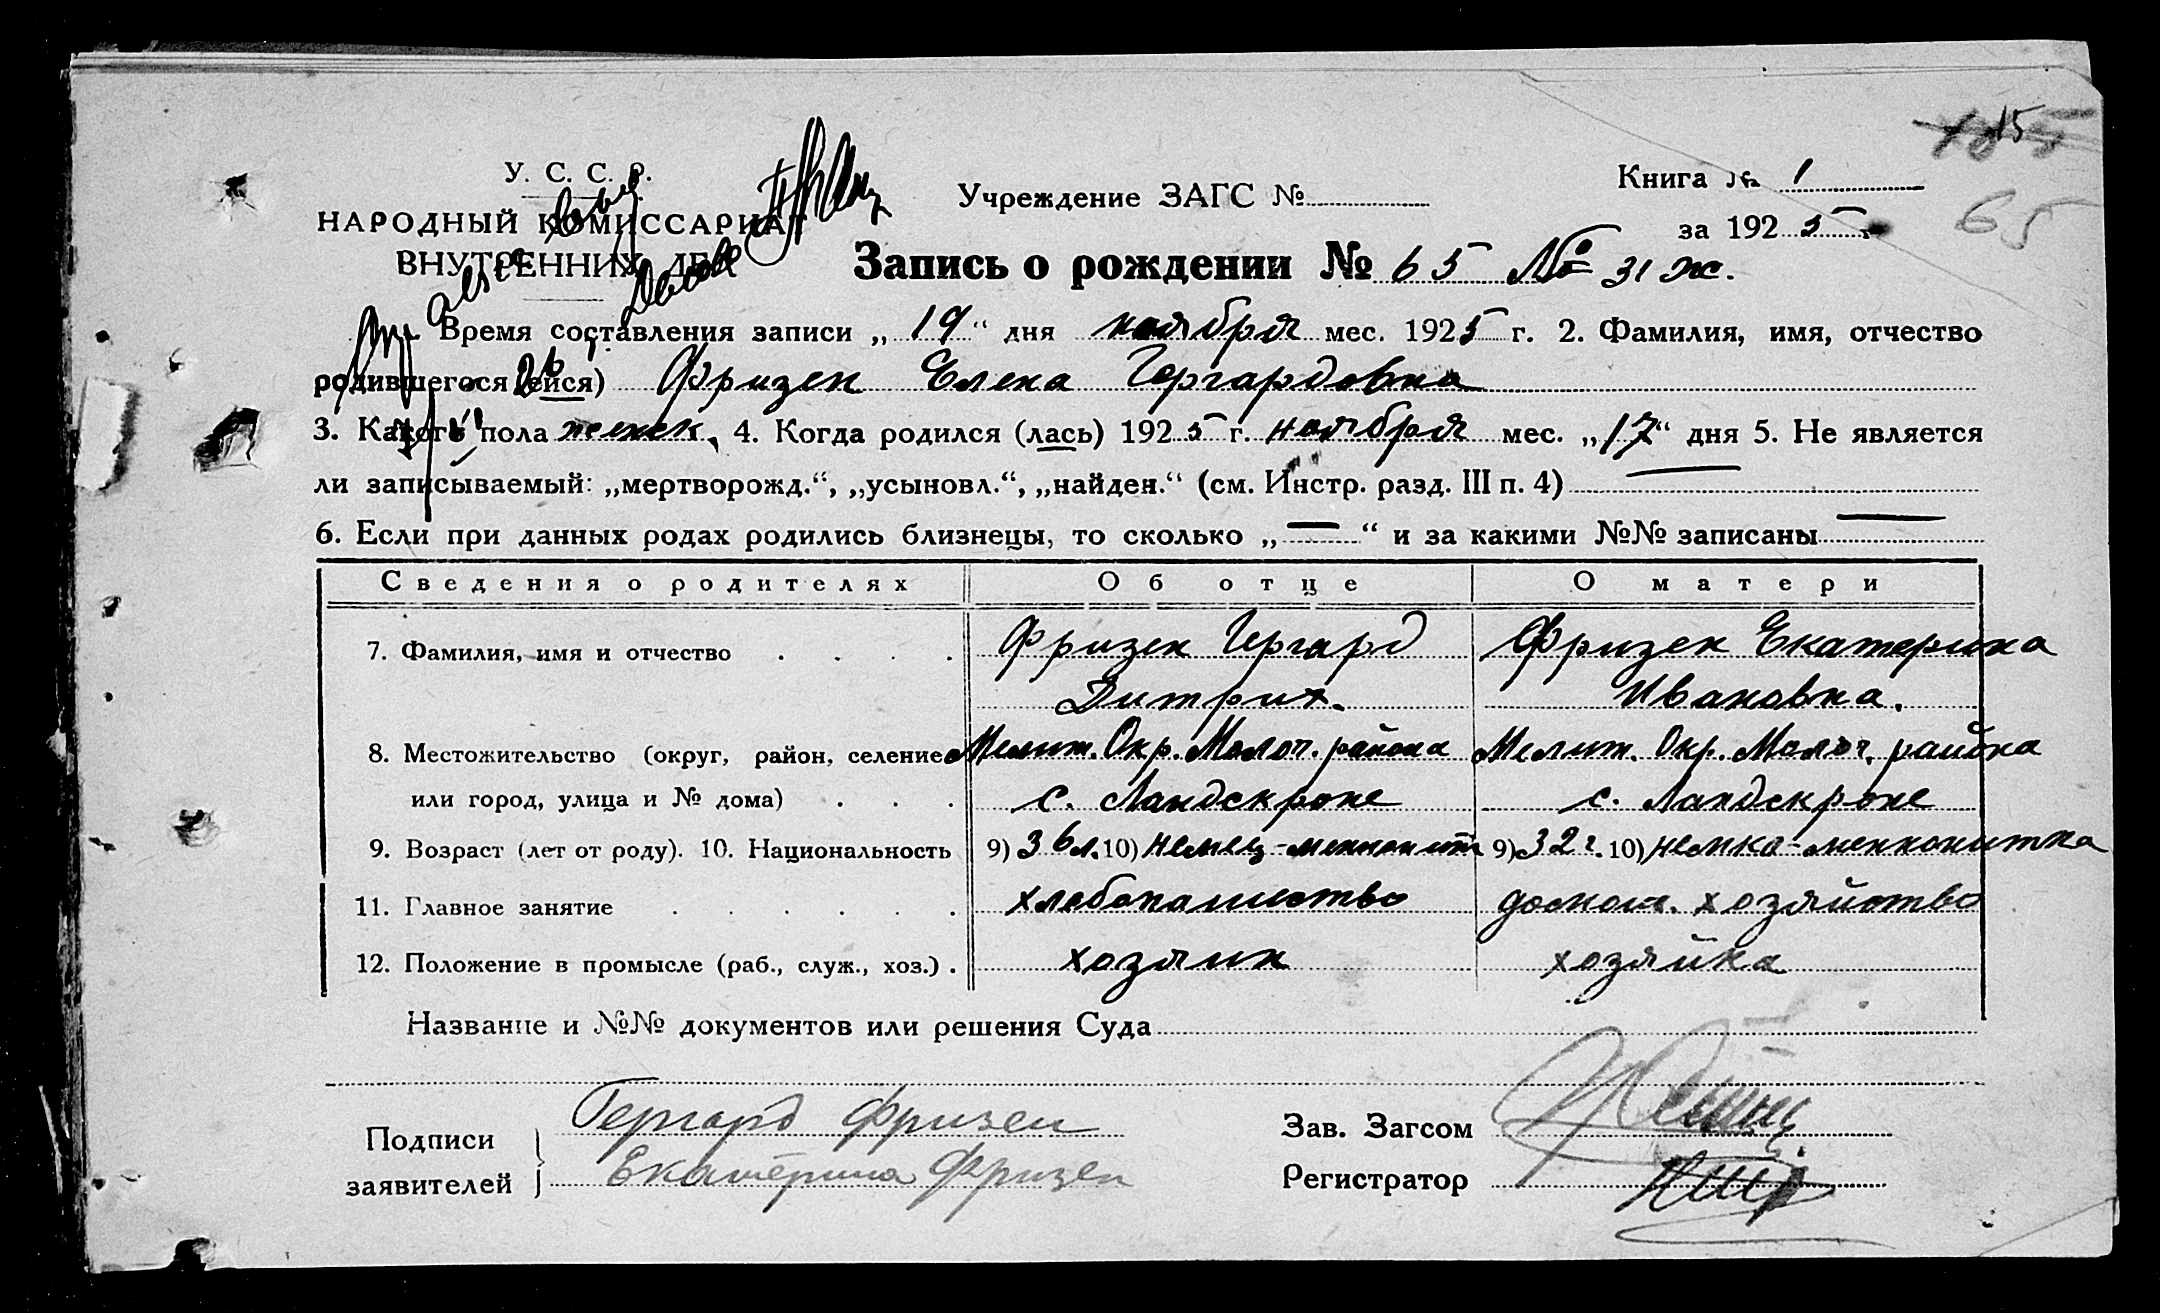 15
У. С. С. Р.
НАРОДНЫЙ КОМИССАРИАТ
ВНУТРЕННИХ ДЕЛ
Учреждение ЗАГС №
Книга № 1
за 1925 г.
65
Запись о рождении № 65 № 31 ж.
Время составления записи „19“ дня ноября мес. 1925 г. 2. Фамилия, имя, отчество
родившегося (ейся) Фризен Елена Гергардовна
3. Какого пола женск. 4. Когда родился (лась) 1925 г. ноября мес. „17“ дня 5. Не является
ли записываемый: „мертворожд.“, „усыновл.“, „найден.“ (см. Инстр. разд. III п. 4) —
6. Если при данных родах родились близнецы, то сколько „—“ и за какими №№ записаны —
Сведения о родителях Об отце О матери
7. Фамилия, имя и отчество . . . . Фризен Гергард Фризен Екатерина
Дитрих. Ивановна.
8. Местожительство (округ, район, селение Мелит. Окр. Молоч. района Мелит. Окр. Молоч. района
или город, улица и № дома) . . . с. Ландскроне с. Ландскроне
9. Возраст (лет от роду). 10. Национальность 9) 36 л. 10) немец-меннонит 9) 32 г. 10) немка-меннонитка
11. Главное занятие . . . . . . хлебопашество домош. хозяйство
12. Положение в промысле (раб., служ., хоз.) . хозяин хозяйка
Название и №№ документов или решения Суда
Подписи
заявителей
Гергард Фризен
Екатерина Фризен
Зав. Загсом
Регистратор